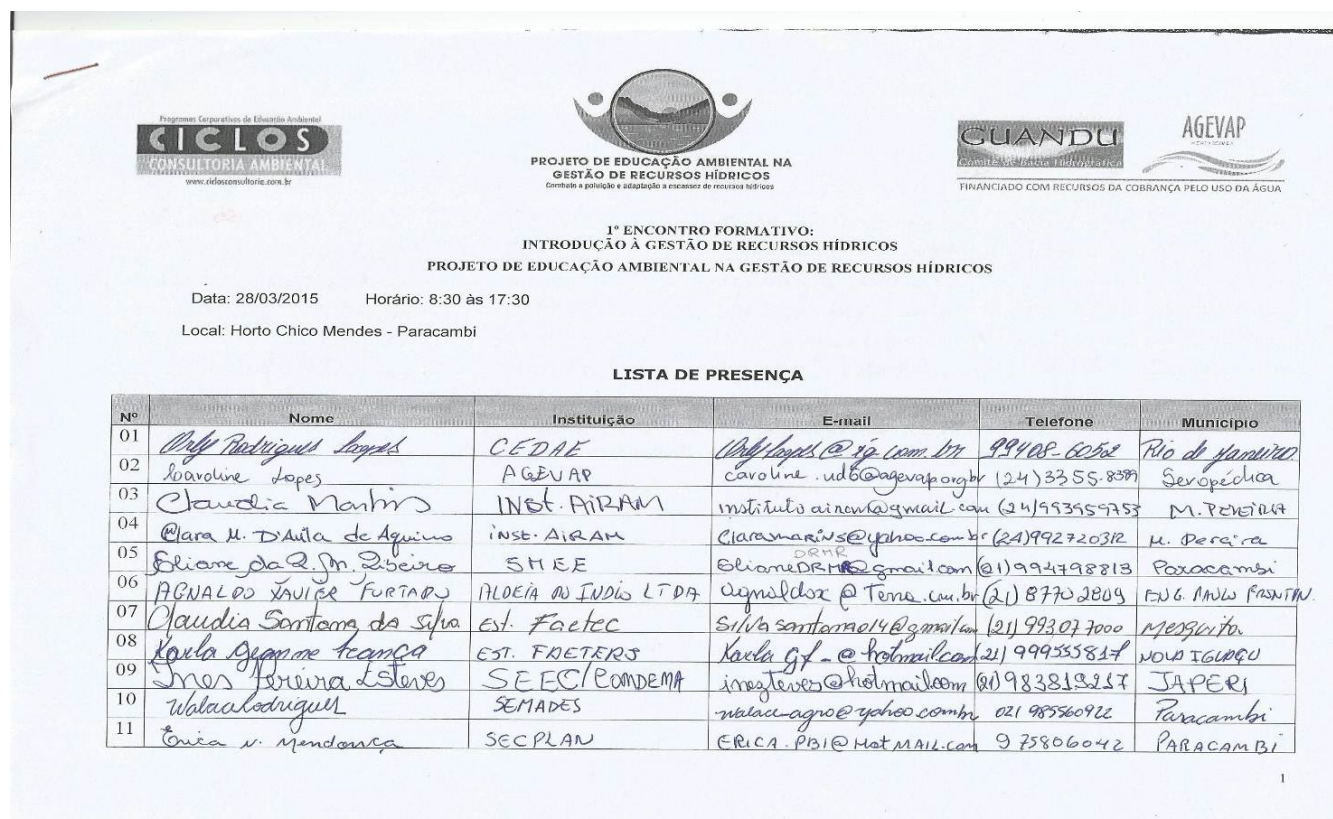 Programas Corporativos de Educação Ambiental
CICLOS
CONSULTORIA AMBIENTAL
www.ciclosconsultoria.com.br
PROJETO DE EDUCAÇÃO AMBIENTAL NA
GESTÃO DE RECURSOS HÍDRICOS
Combate a poluição e adaptação a escassez de recursos hídricos
GUANDU
Comitê de Bacia Hidrográfica
AGEVAP
FINANCIADO COM RECURSOS DA COBRANÇA PELO USO DA ÁGUA
1º ENCONTRO FORMATIVO:
INTRODUÇÃO À GESTÃO DE RECURSOS HÍDRICOS
PROJETO DE EDUCAÇÃO AMBIENTAL NA GESTÃO DE RECURSOS HÍDRICOS
Data: 28/03/2015 Horário: 8:30 às 17:30
Local: Horto Chico Mendes - Paracambi
LISTA DE PRESENÇA
Nº Nome Instituição E-mail Telefone Município
01 Orly Rodrigues Lopes CEDAE Orlylopes@ig.com.br 99408-6052 Rio de Janeiro
02 Caroline Lopes AGEVAP caroline.ud6@agevap.orgbr (24)3355-8389 Seropédica
03 Claudia Martins INSt. AiRAM institutoairam@gmail.com (24)993959753 M. PEREIRA
04 Clara M. D'Avila de Aquino inst. AiRAM Claramarins@yahoo.com.br (24)992720312 M. Pereira
05 Eliane da R. M. Ribeiro SMEE ElianeDRMR@gmail.com (21)994798813 Paracambi
DRMR
06 AGNALDO XAVIER FURTADO ALDEIA DO INDIO LTDA agnaldox@Terra.com.br (21)87702809 ENG. PAULO FRONTIN.
07 Claudia Santana da Silva Est. Faetec Silvasantana014@gmail.com (21)993077000 Mesquita
08 Karla Gianne França EST. FAETERJ Karlagf_@hotmail.com (21)999555817 NOVA IGUAÇU
09 Ines Pereira Esteves SEEC/COMDEMA inezteves@hotmail.com (21)983819217 JAPERI
10 Walace Rodrigues SEMADES walace-agro@yahoo.com.br 021 985560922 Paracambi
11 Erica N. Mendonça SECPLAN ERICA.PBI@HotMAIL.com 975806042 PARACAMBI
1